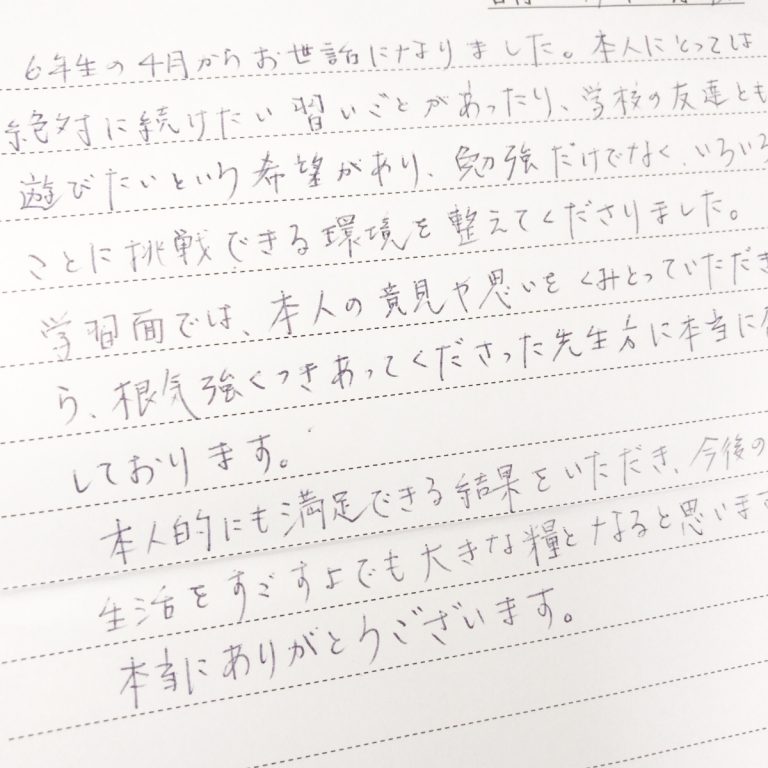 6年生の4月からお世話になりました。本人にとっては
絶対に続けたい習いごとがあったり、学校の友達とも
遊びたいという希望があり、勉強だけでなく、いろいろ
ことに挑戦できる環境を整えてくださりました。
学習面では、本人の意見や思いをくみとっていただき
ら、根気強くつきあってくださった先生方に本当に
しております。
本人的にも満足できる結果をいただき、今後の
生活をすごすよでも大きな糧となると思います
本当にありがとうございます。